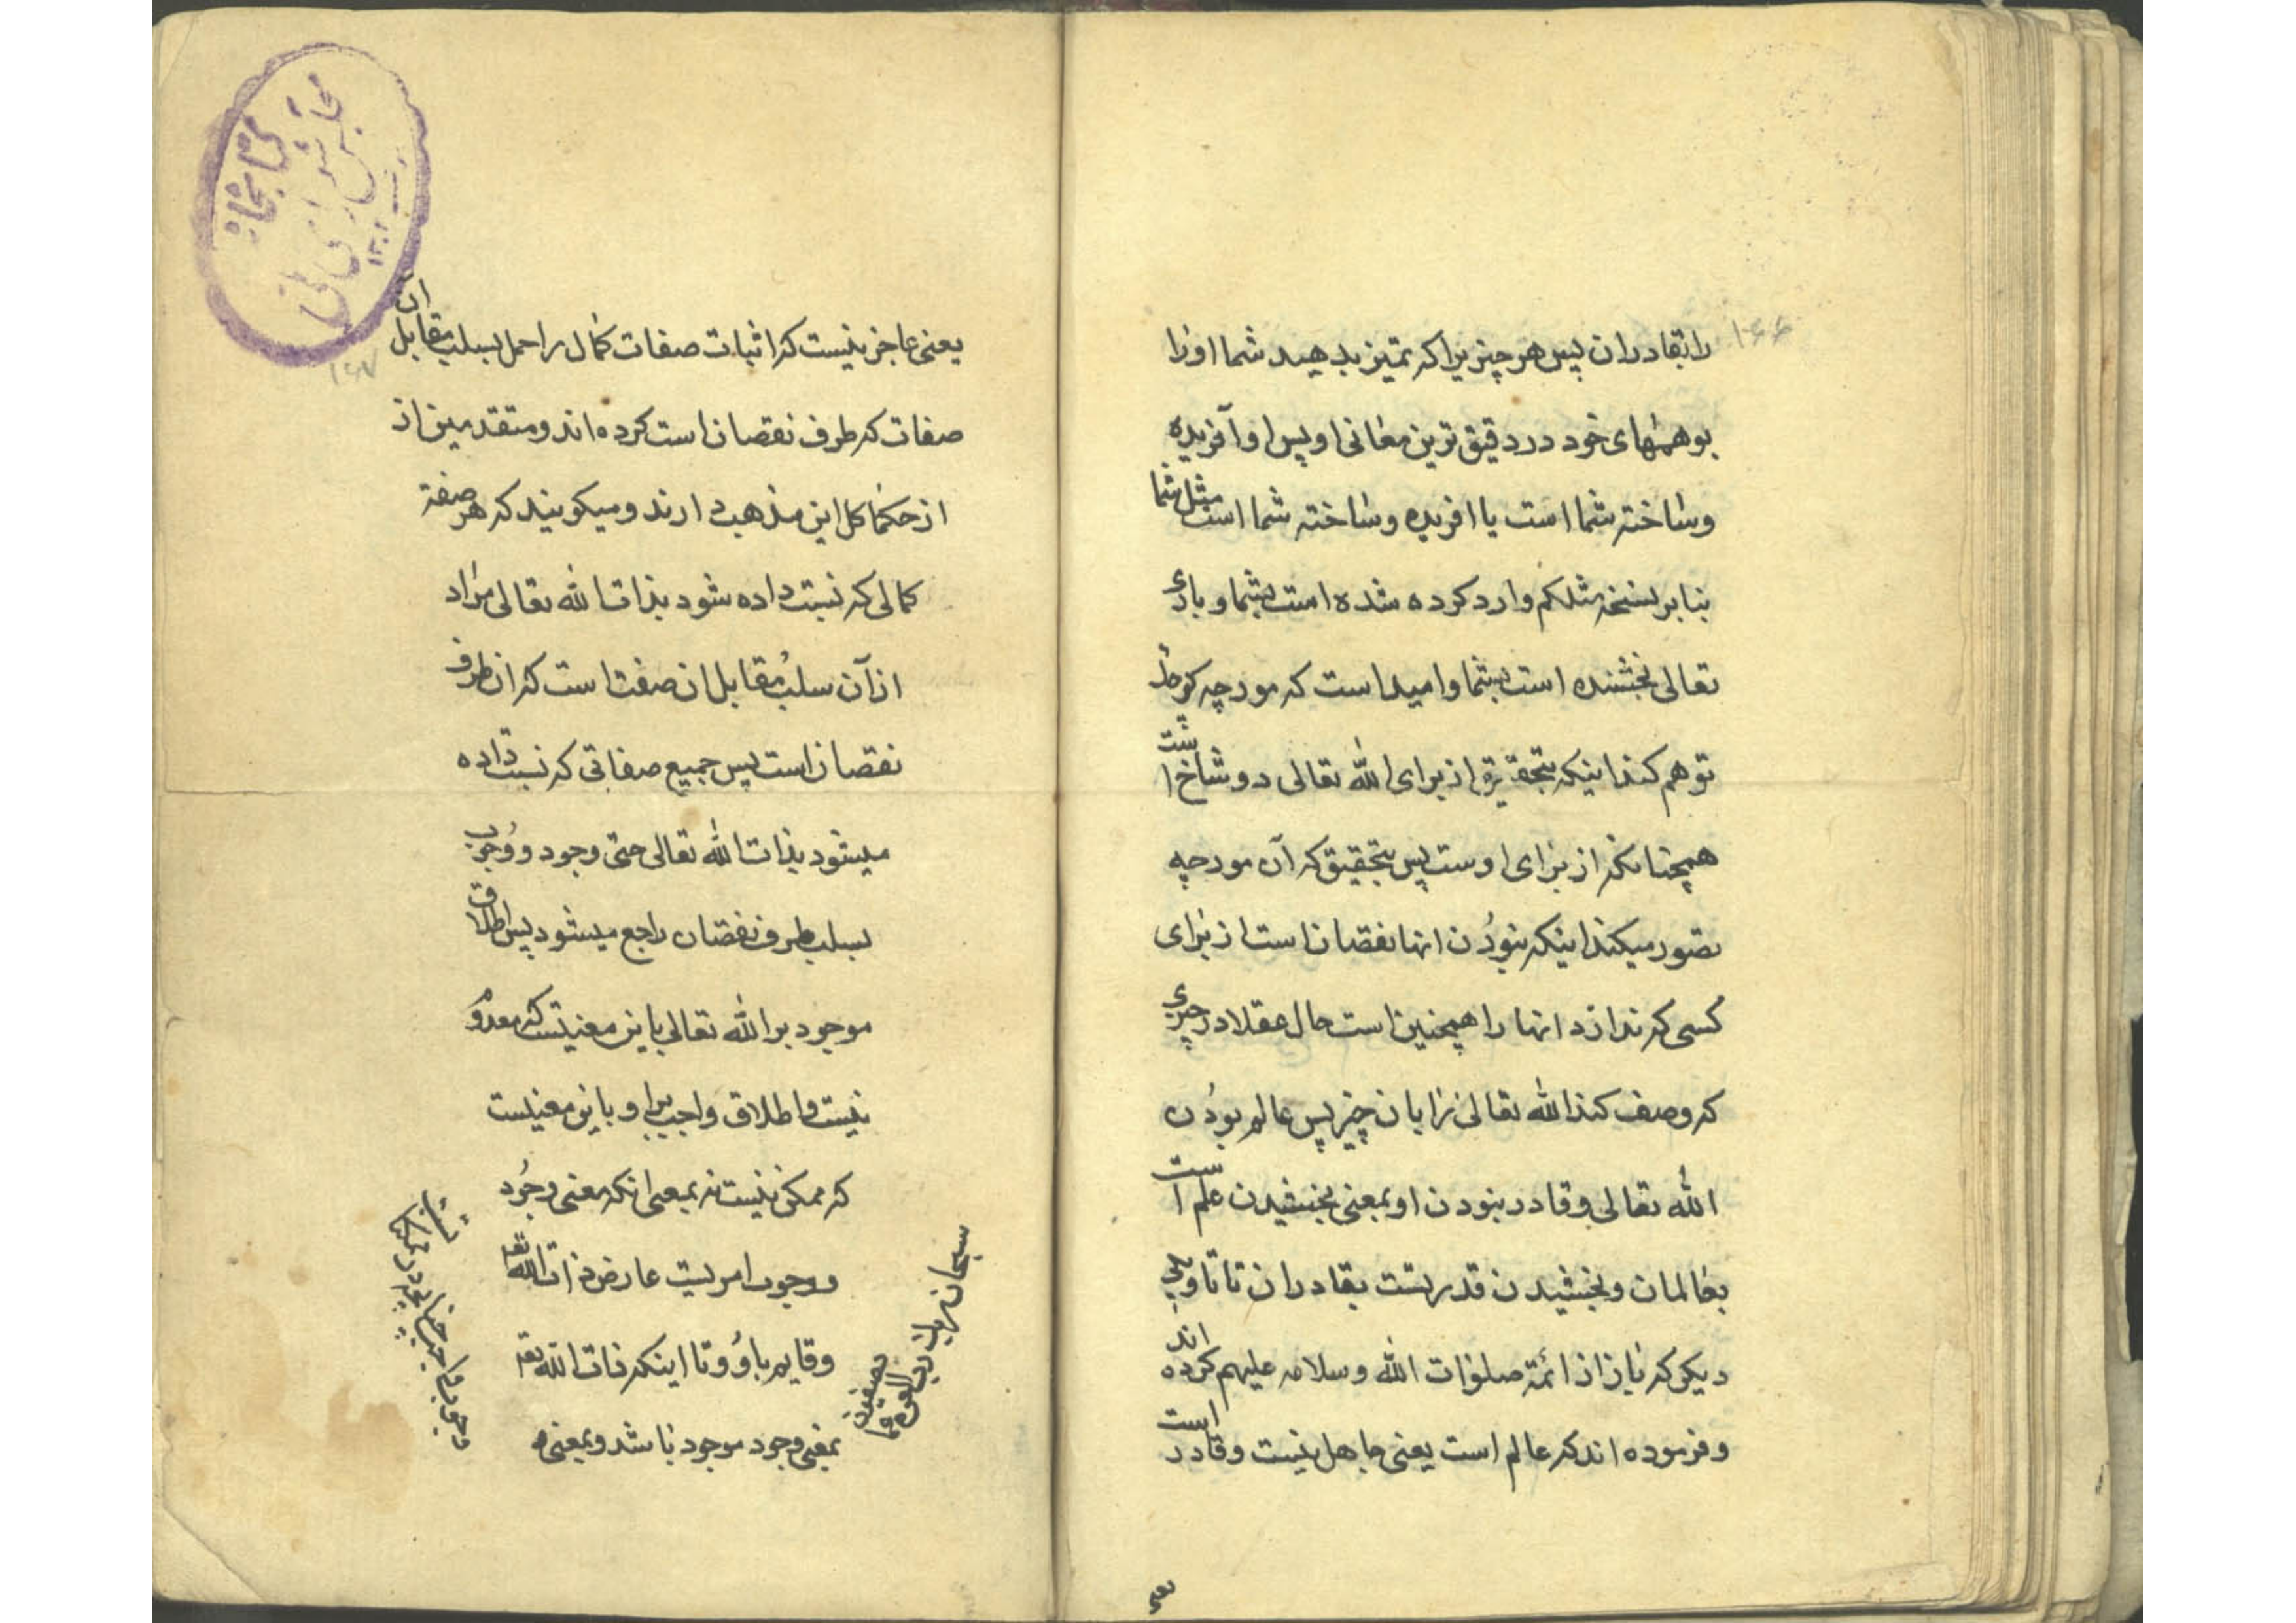 ۱۶۶
را بقادران پس هر چیزیرا که تمیز بدهید شما او را
بوهمهای خود در دقیق ترین معانی او پس او آفریده
و ساخته شما است یا افریده و ساخته شما است مثل شما
بنابر نسخه مثلکم وارد کرده شده است بشما و باری
تعالی بخشنده است بشما و امید است که مورچه کوچک
توهم کند اینکه بتحقیق از برای الله تعالی دو شاخ است
همچنانکه از برای اوست پس بتحقیق که آن مورچه
تصور میکند اینکه نبودن انها نقصان است از برای
کسی که ندارد انها را همچنین است حال عقلا در چیزی
که وصف کند الله تعالی را بان چیز پس عالم بودن
الله تعالی و قادر بودن او بمعنی بخشیدن علم است
بعالمان و بخشیدن قدرتست بقادران تا تاویلی
دیگر که باز از ائمة صلوات الله و سلامه علیهم کرده اند
و فرموده اند که عالم است یعنی جاهل نیست و قادر است
یعنی
۱۶۷
یعنی عاجز نیست که اثبات صفات کمال را حمل بسلب مقابل ان
صفات که طرف نقصان است کرده اند و متقدمین از
از حکما کل این مذهب دارند و میکویند که هر صفة
کمالی که نسبت داده شود بذات الله تعالی مراد
از آن سلب مقابل ان صفت است که ان طرف
نقصان است پس جمیع صفاتی که نسبت داده
میشود بذات الله تعالی حتی وجود و وجوب
بسلب طرف نقصان راجع میشود پس اطلاق
موجود بر الله تعالی باین معنیست که معدوم
نیست و اطلاق واجب بر او باین معنیست
که ممکن نیست نه بمعنی انکه معنی وجود
و وجوب امریست عارض ذات الله تعه
و قایم باو و تا اینکه ذات الله تعه
بمعنی وجود موجود باشد و بمعنی
سبحان ربک رب العزة عما
یصفون
کتابخانه
مجلس شورای ملی
۱۳۰۲